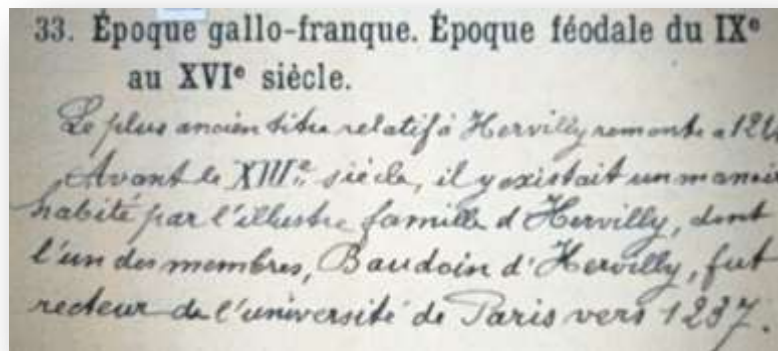 33. Époque gallo-franque. Époque féodale du IXᵉ
au XVIᵉ siècle.
Le plus ancien titre relatif à Hervilly remonte a
Avant le XIIIᵉ siècle, il y existait un manoir
habité par l'illustre famille d'Hervilly, dont
l'un des membres, Baudoin d'Hervilly, fut
recteur de l'université de Paris vers 1237.